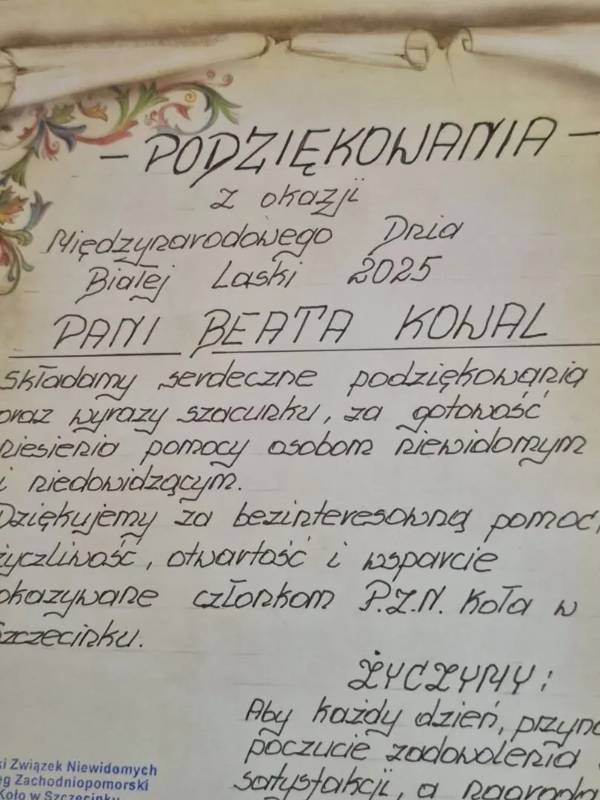 - PODZIĘKOWANIA -
z okazji
Międzynarodowego Dnia
Białej Laski 2025
PANI BEATA KOWAL
Składamy serdeczne podziękowania
oraz wyrazy szacunku, za gotowość
niesienia pomocy osobom niewidomym
i niedowidzącym.
Dziękujemy za bezinteresowną pomoc,
życzliwość, otwartość i wsparcie
okazywane członkom P.Z.N. Koła w
Szczecinku.
ŻYCZYMY:
Aby każdy dzień, przyno
poczucie zadowolenia
satysfakcji, a nagrodą
ki Związek Niewidomych
ęg Zachodniopomorski
Koło w Szczecinku